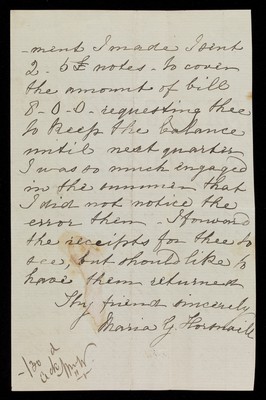 -ment I made I sent
2 - 5£ notes - to cover
the amount of bill
8-0-0 - requesting thee
to keep the balance
until next quarter
I was so much engaged
in the summer that
I did not notice the
error then - I forward
the receipts for thee to
see, but should like to
have them returned
Thy friend sincerely
Maria G. Horsnaill